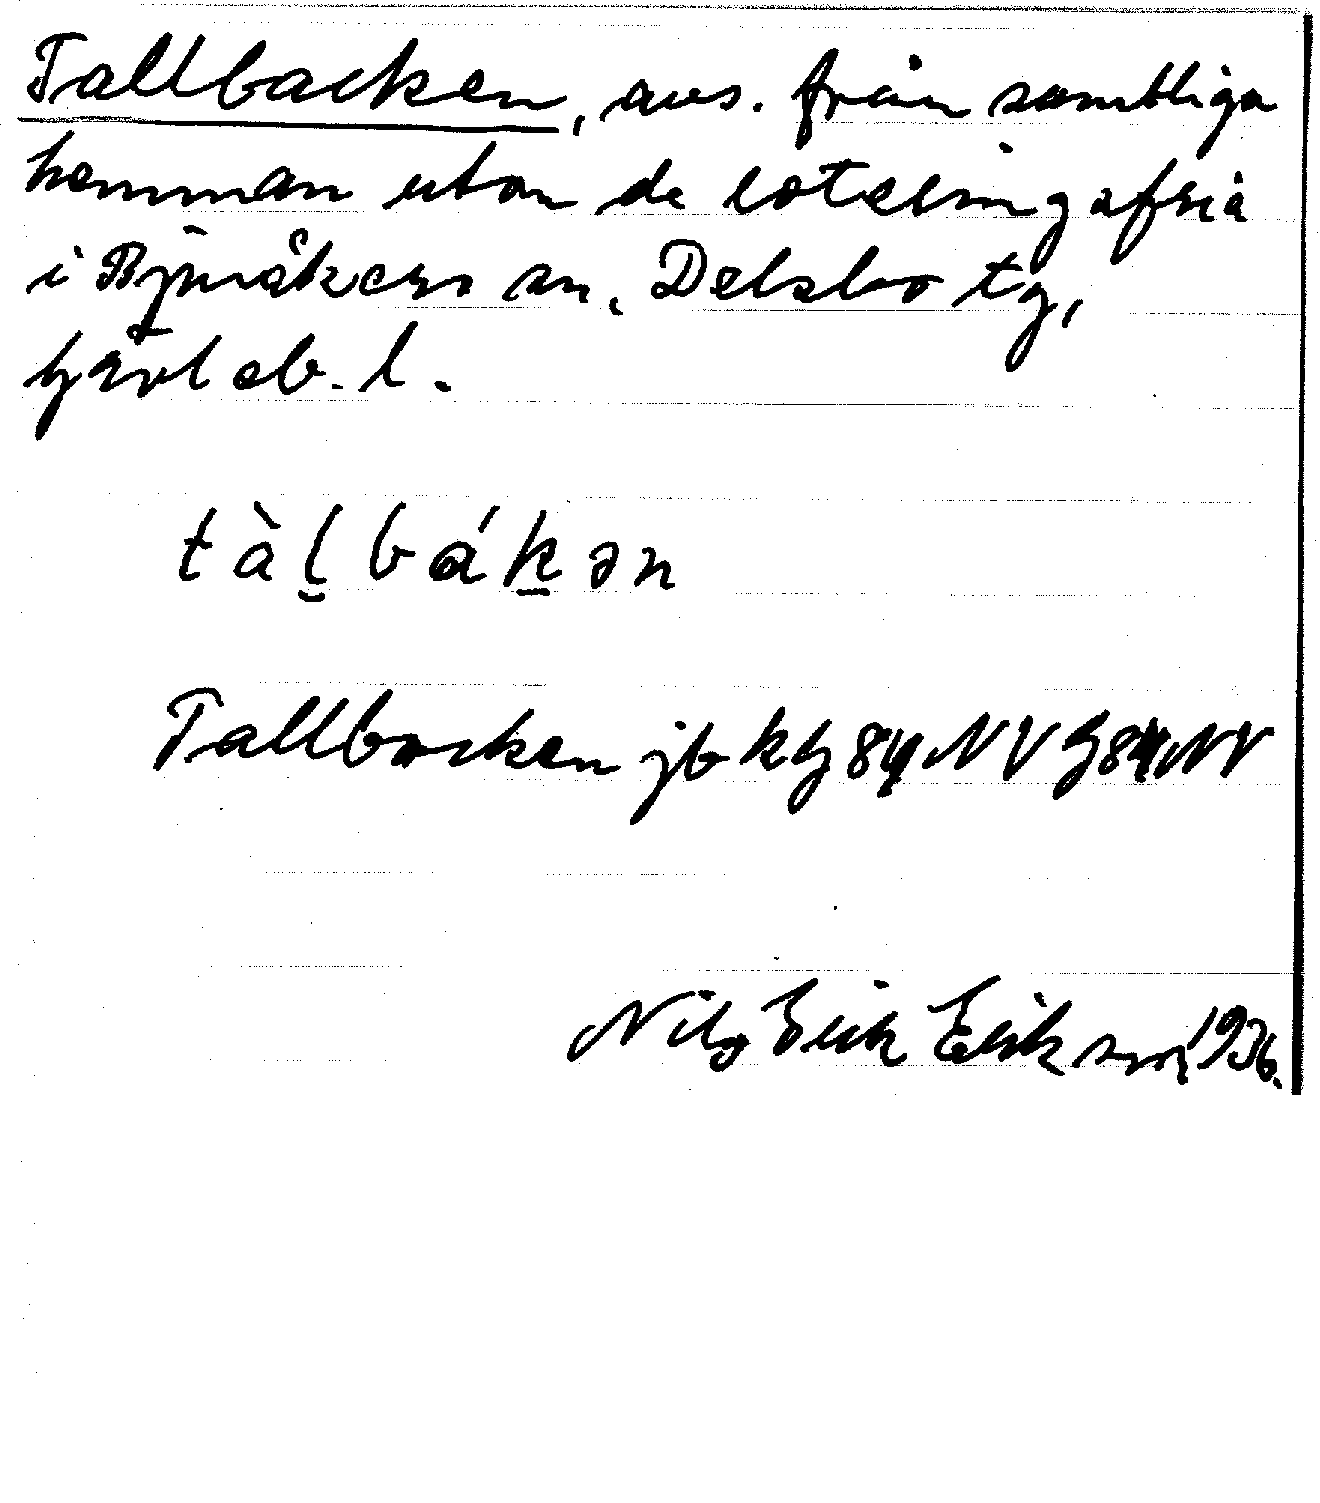 Tallbacken, avs. från samtliga
hemman utom de lotelningsfria
i Bjuråkers sn, Delsbo tg,
Gävleb. l.
tàl̮bák̠ən
Tallbacken jb kG 84 NV G 84 NV
Nils Erik Eriksson 1936.